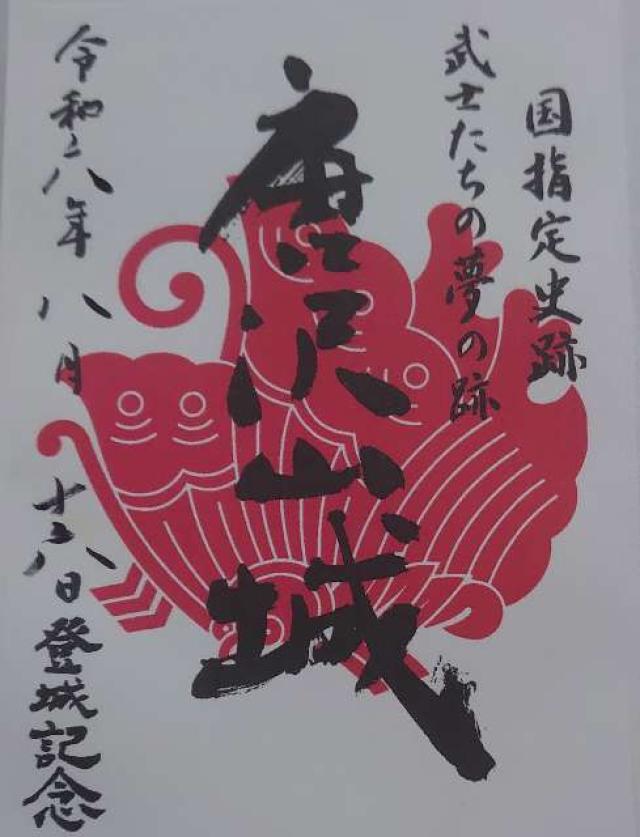 国指定史跡
武士たちの夢の跡
唐沢山城
令和六年 八月 十六日 登城記念